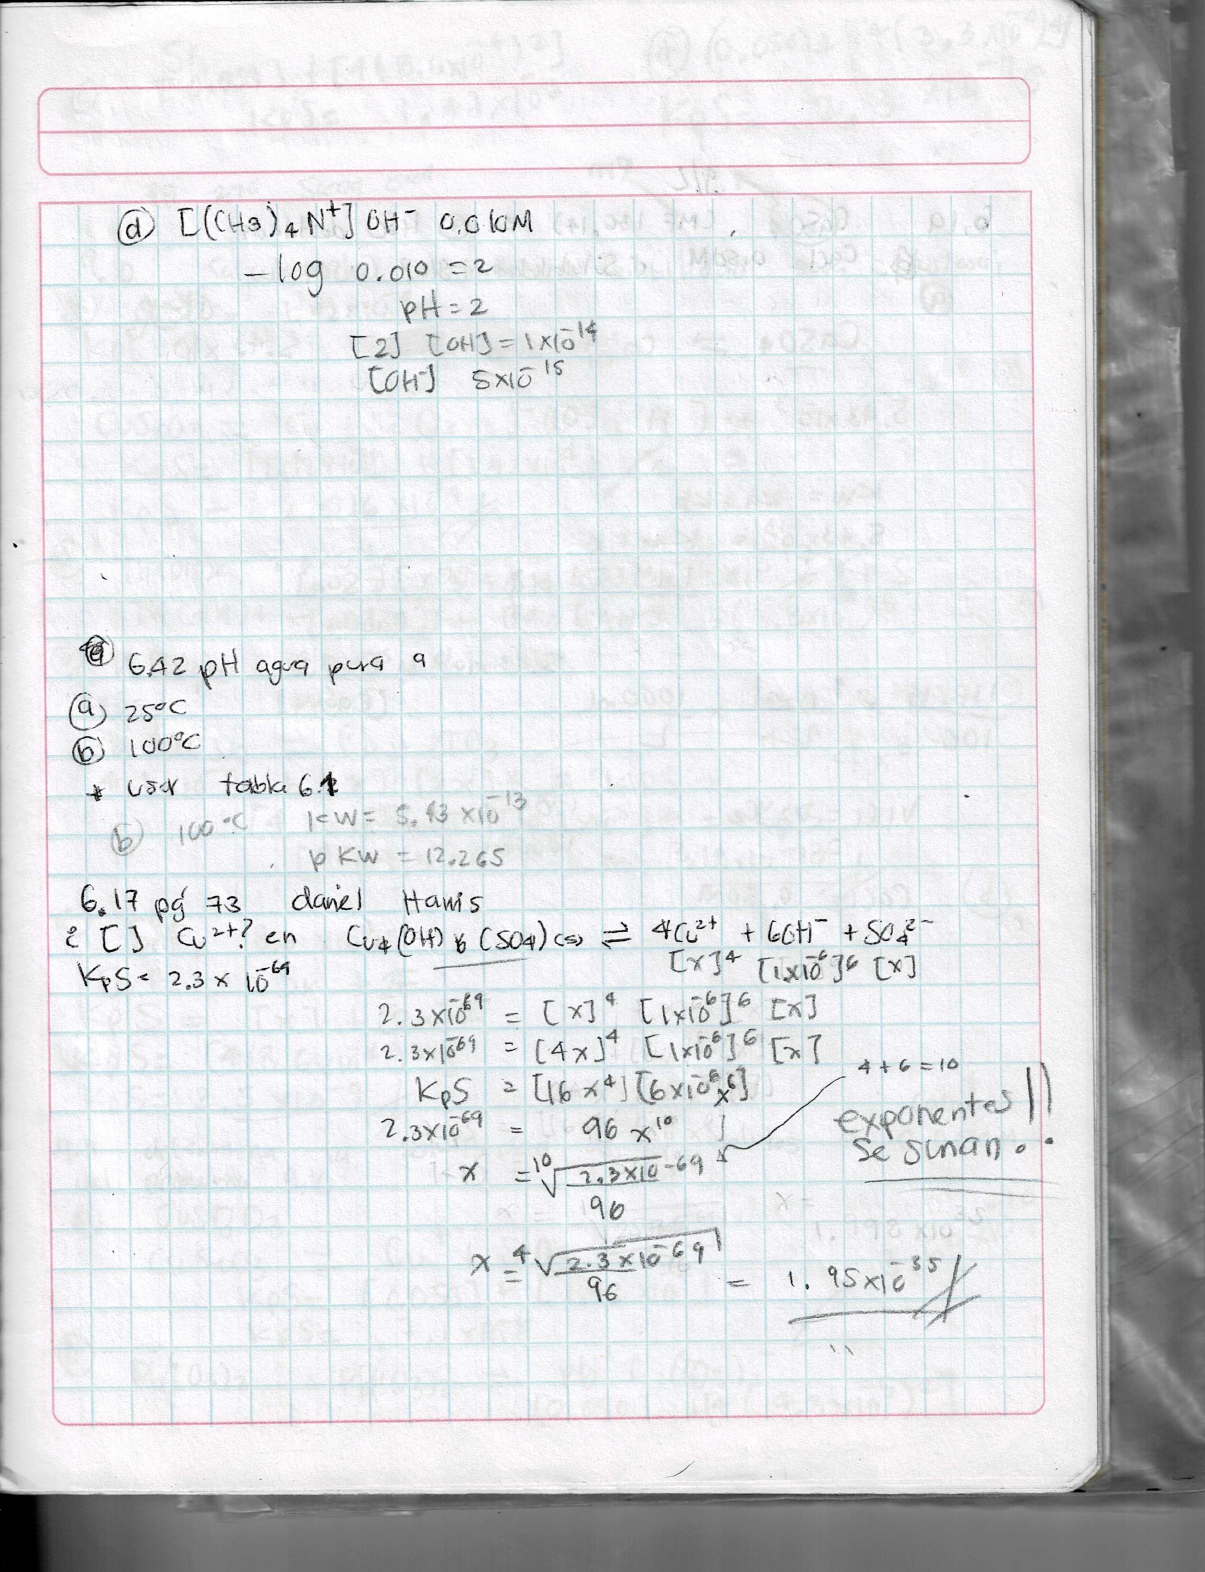 (d) [(CH3)₄N⁺] OH⁻ 0.010M
-log 0.010 = 2
pH = 2
[2] [OH] = 1x10⁻¹⁴
[OH⁻] 5x10⁻¹⁵
6.42 pH agua pura a
(a) 25°C
(b) 100°C
* usar tabla 6.1
(b) 100°C KW = 5.43 x10⁻¹³
pKw = 12.265
6.17 pg 73 daniel Harris
¿ [ ] Cu²⁺? en Cu₄(OH)₆(SO₄)(s) ⇌ 4Cu²⁺ + 6OH⁻ + SO₄²⁻
KpS = 2.3 x 10⁻⁶⁹ [x]⁴ [1x10⁻⁶]⁶ [x]
2.3x10⁻⁶⁹ = [x]⁴ [1x10⁻⁶]⁶ [x]
2.3x10⁻⁶⁹ = [4x]⁴ [1x10⁻⁶]⁶ [x]
KpS = [16x⁴] [6x10⁻⁶x⁶]
4+6=10
2.3x10⁻⁶⁹ = 96 x¹⁰
exponentes !!
se suman.
x = ¹⁰√2.3x10⁻⁶⁹
96
x = ⁴√2.3x10⁻⁶⁹ = 1.95x10⁻³⁵
96